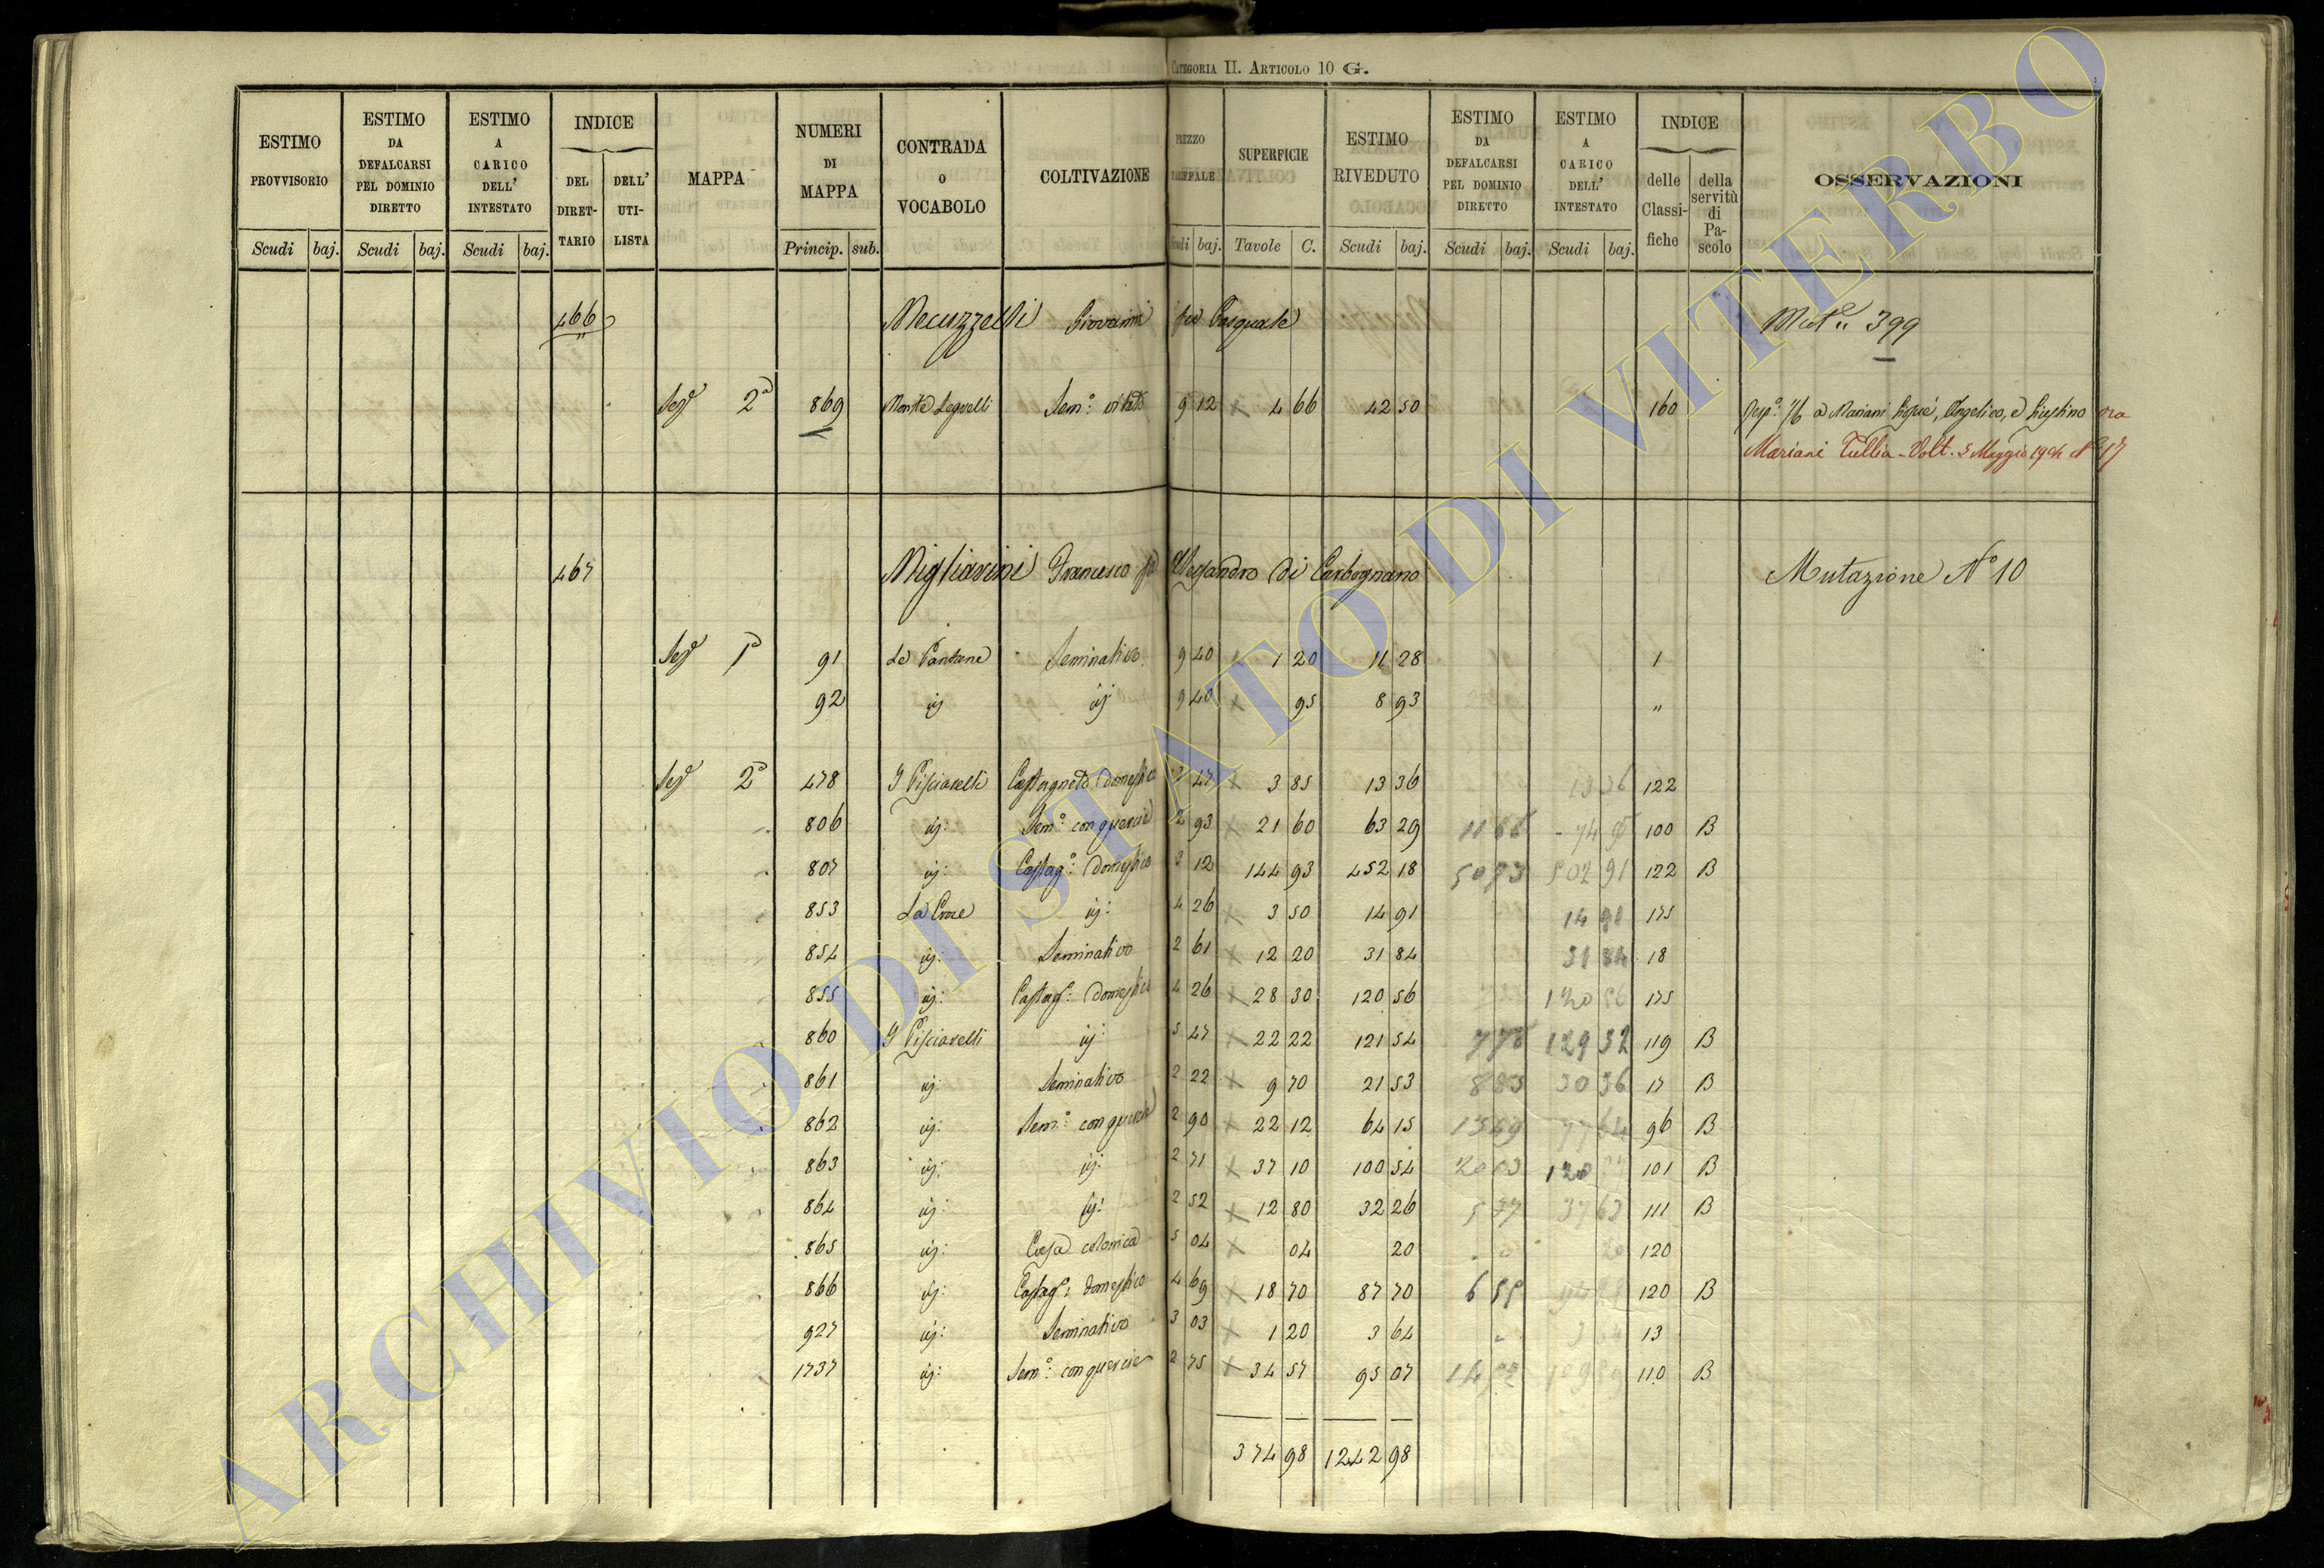 CATEGORIA II. ARTICOLO 10 G.
ESTIMO PROVVISORIO Scudi baj.
ESTIMO DA DEFALCARSI PEL DOMINIO DIRETTO Scudi baj.
ESTIMO A CARICO DELL' INTESTATO Scudi baj.
INDICE DEL DIRETTARIO DELL' UTILISTA
MAPPA
NUMERI DI MAPPA Princip. sub.
CONTRADA O VOCABOLO
COLTIVAZIONE
baj.
SUPERFICIE Tavole C.
ESTIMO RIVEDUTO Scudi baj.
ESTIMO DA DEFALCARSI PEL DOMINIO DIRETTO Scudi baj.
ESTIMO A CARICO DELL' INTESTATO Scudi baj.
INDICE delle Classifiche della servitù di Pascolo
OSSERVAZIONI
466 Mecuzzelli Giovanni fu Pasquale 399
2a 869 Sem.o vitato 9 12 4 66 42 50 160 a Mariani Angelico, e Giustino ora
Mariani Tullia - Volt. 5 Maggio No 17
467 Migliarini Francesco fu Alessandro di Carbognano Mutazione No 10
1a 91 Le Pantane Seminativo 9 40 1 20 11 28 1
92 ij ij 9 40 95 8 93 "
2a 478 I Pisciarelli Castagneto domestico 3 47 3 85 13 36 13 36 122
806 ij: Sem.o con quercie 2 93 21 60 63 29 100 B
807 ij: Castag.o: domestico 3 12 144 93 452 18 50 73 502 91 122 B
853 La Croce ij: 4 26 3 50 14 91 14 91 175
854 ij: Seminativo 2 61 12 20 31 84 31 84 18
855 ij: Castag.o: domestico 4 26 28 30 120 56 120 56 175
860 I Pisciarelli ij: 5 47 22 22 121 54 7 78 129 32 119 B
861 ij: Seminativo 2 22 9 70 21 53 8 83 30 36 17 B
862 ij: Sem.o: con quercie 2 90 22 12 64 15 96 B
863 ij: ij: 2 71 37 10 100 54 101 B
864 ij: ij: 2 52 12 80 32 26 5 37 37 63 111 B
865 ij: Casa colonica 5 04 04 20 20 120
866 ij: Castag.o: domestico 4 69 18 70 87 70 120 B
927 ij: Seminativo 3 03 1 20 3 64 13
1737 ij: Sem.o: con quercie 2 75 34 57 95 07 110 B
374 98 1242 98
ARCHIVIO DI STATO DI VITERBO